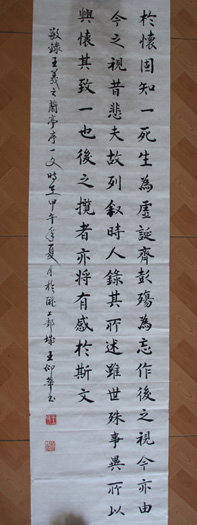 於懷固知一死生為虛誕齊彭殤為忘作後之視今亦由
今之視昔悲夫故列叙時人錄其所述雖世殊事異所以
興懷其致一也後之攬者亦將有感於斯文
敬錄王羲之蘭亭序一文時在甲午年夏月於 王仰華書